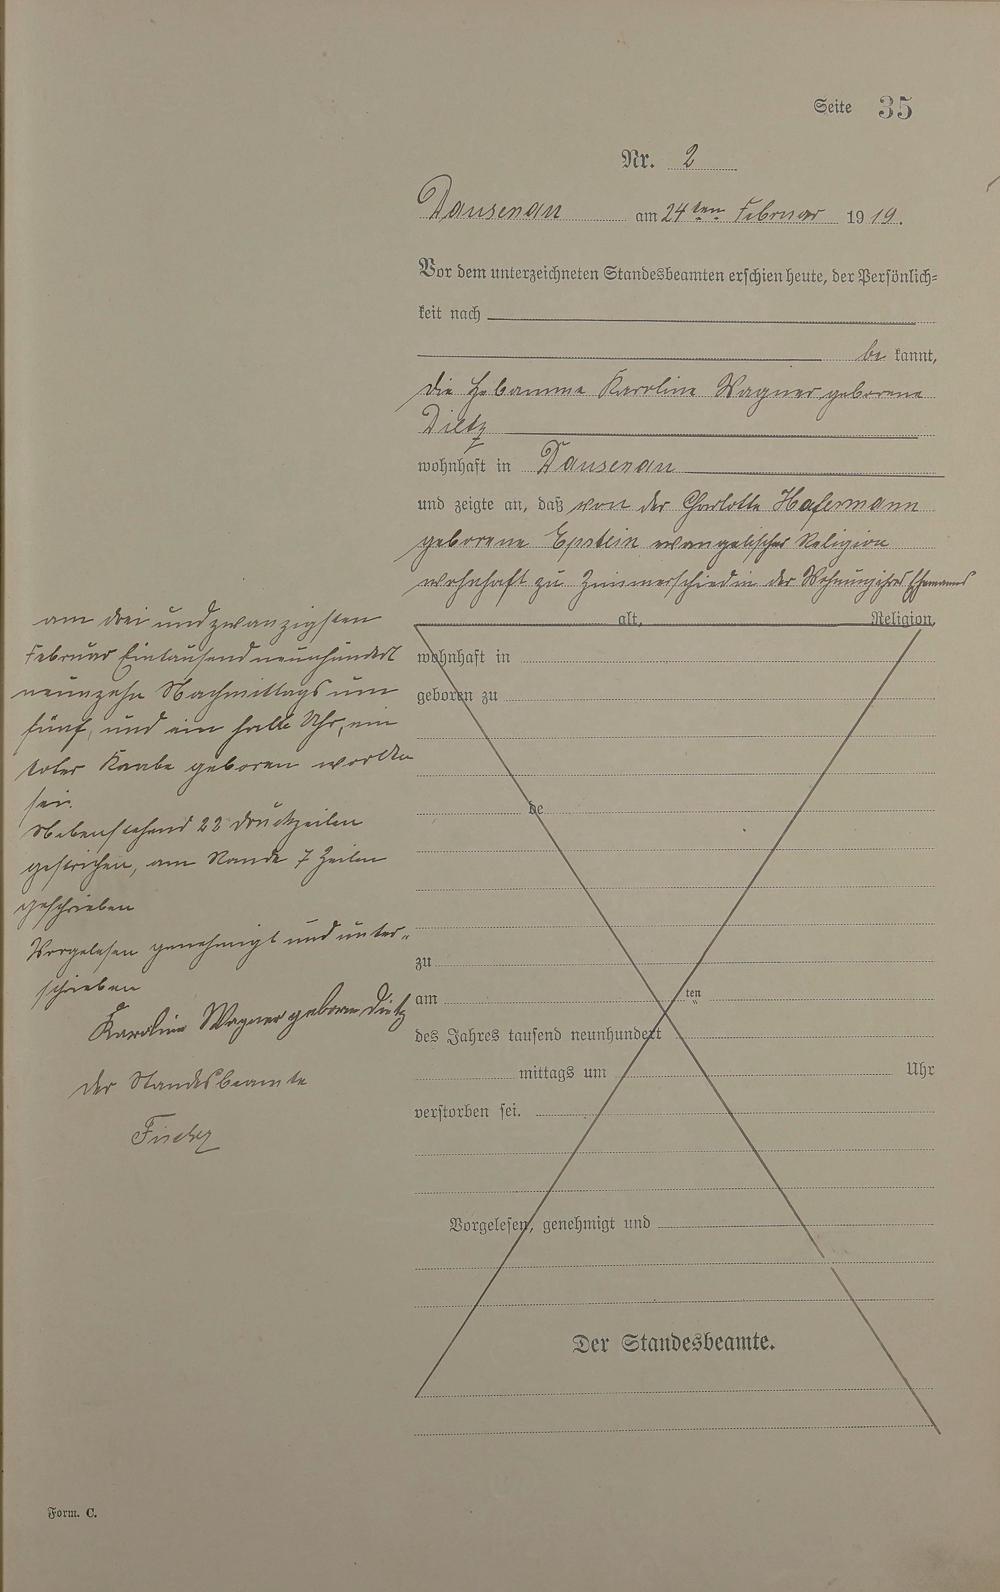 Seite 35
Nr. 2
Dausenau am 24ten Februar 1919.
Vor dem unterzeichneten Standesbeamten erschien heute, der Persönlich-
keit nach
be kannt,
die Hebamme Karoline Wagner geborene
Dietz
wohnhaft in Dausenau
und zeigte an, daß von der Charlotte Hafermann
geborene Epstein evangelischer Religion
wohnhaft zu Zimmerschied in der Wohnung ihres Ehemannes
alt, Religion,
wohnhaft in
geboren zu
de
zu
am ten
des Jahres tausend neunhundert
mittags um Uhr
verstorben sei.
Vorgelesen, genehmigt und
Der Standesbeamte.
am drei und zwanzigsten
Februar Eintausend neunhundert
neunzehn Nachmittags um
fünf und ein halb Uhr, ein
toter Knabe geboren worden
sei.
Nebenstehend 22 Druckzeilen
gestrichen, am Rande 7 Zeilen
geschrieben
Vorgelesen genehmigt und unter-
schrieben
Karoline Wagner geborne Dietz
der Standesbeamte
Fischer
Form. C.